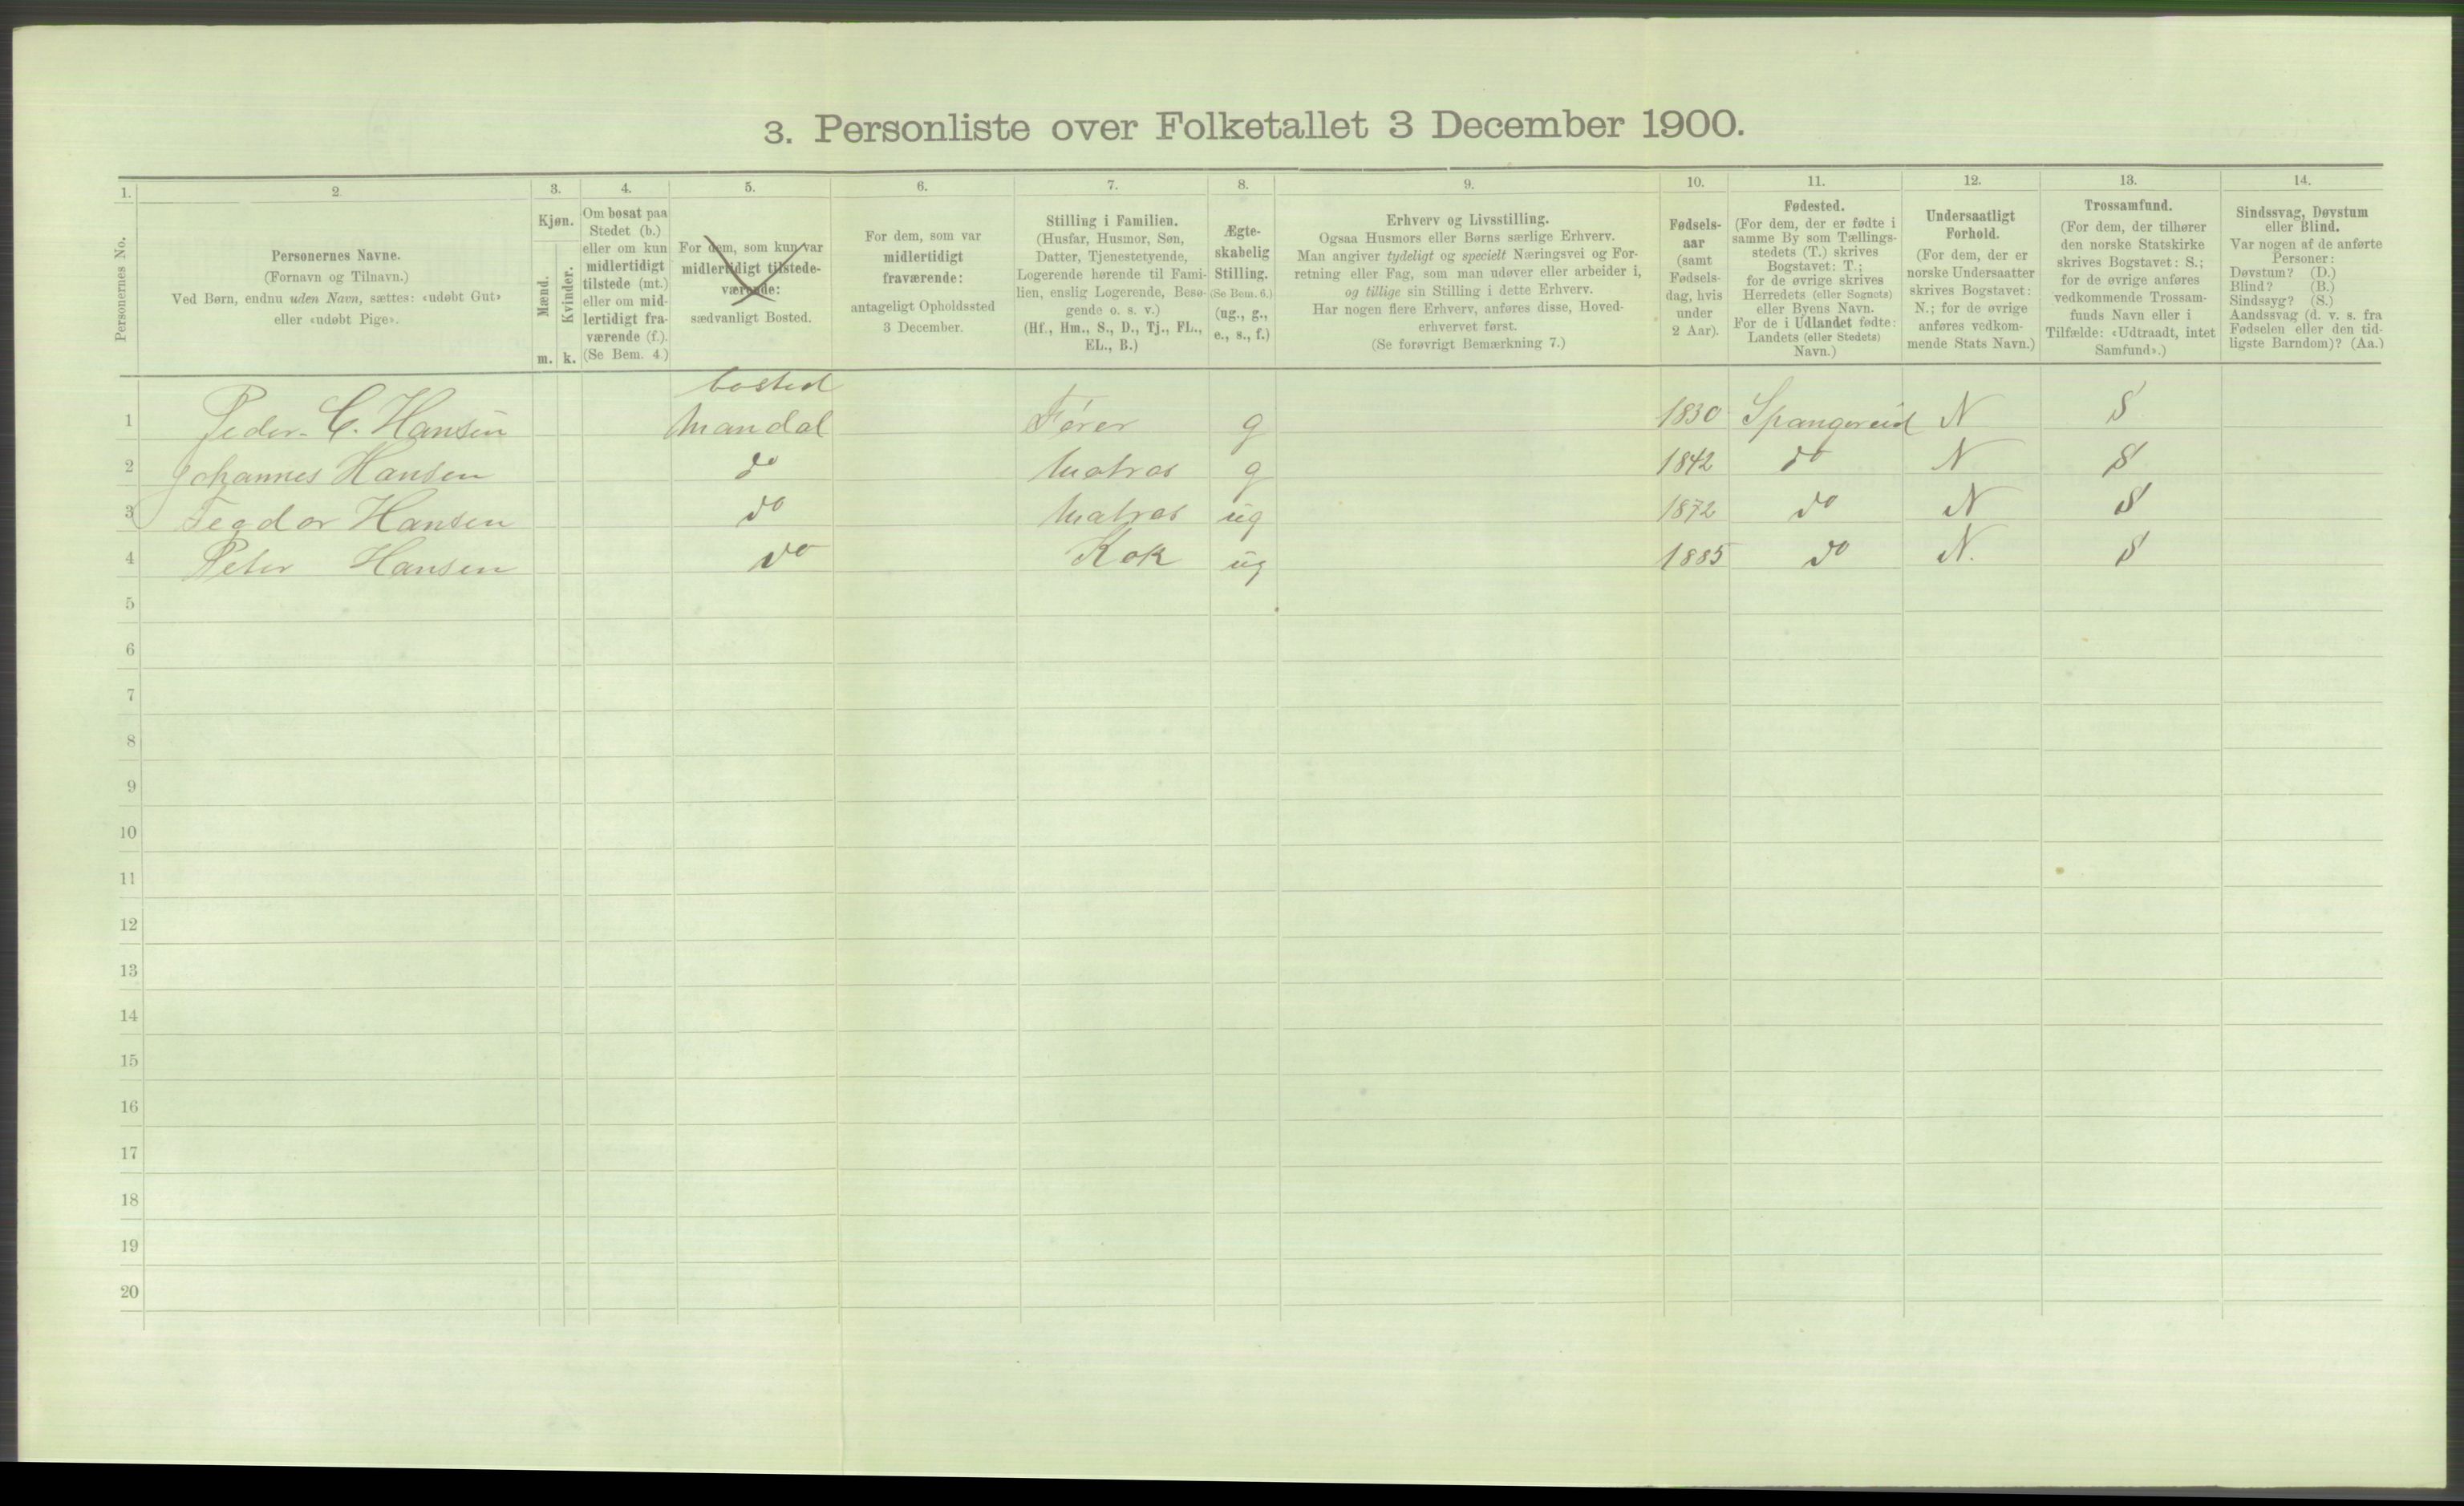 3. Personliste over Folketallet 3 December 1900.
1. 2. 3. 4. 5. 6. 7. 8. 9. 10. 11. 12. 13. 14.
Personernes No.
Personernes Navne.
(Fornavn og Tilnavn.)
Ved Børn, endnu uden Navn, sættes: «udøbt Gut»
eller «udøbt Pige».
Kjøn.
Mænd.
Kvinder.
m. k.
Om bosat paa
Stedet (b.)
eller om kun
midlertidigt
tilstede (mt.)
eller om mid-
lertidigt fra-
værende (f.).
(Se Bem. 4.)
For dem, som kun var
midlertidigt tilstede-
værende:
sædvanligt Bosted.
For dem, som var
midlertidigt
fraværende:
antageligt Opholdssted
3 December.
Stilling i Familien.
(Husfar, Husmor, Søn,
Datter, Tjenestetyende,
Logerende hørende til Fami-
lien, enslig Logerende, Besø-
gende o. s. v.)
(Hf., Hm., S., D., Tj., FL.,
EL., B.)
Ægte-
skabelig
Stilling.
(Se Bem. 6.)
(ug., g.,
e., s., f.)
Erhverv og Livsstilling.
Ogsaa Husmors eller Børns særlige Erhverv.
Man angiver tydeligt og specielt Næringsvei og For-
retning eller Fag, som man udøver eller arbeider i,
og tillige sin Stilling i dette Erhverv.
Har nogen flere Erhverv, anføres disse, Hoved-
erhvervet først.
(Se forøvrigt Bemærkning 7.)
Fødsels-
aar
(samt
Fødsels-
dag, hvis
under
2 Aar).
Fødested.
(For dem, der er fødte i
samme By som Tællings-
stedets (T.) skrives
Bogstavet: T.;
for de øvrige skrives
Herredets (eller Sognets)
eller Byens Navn.
For de i Udlandet fødte:
Landets (eller Stedets)
Navn.)
Undersaatligt
Forhold.
(For dem, der er
norske Undersaatter
skrives Bogstavet:
N.; for de øvrige
anføres vedkom-
mende Stats Navn.)
Trossamfund.
(For dem, der tilhører
den norske Statskirke
skrives Bogstavet: S.;
for de øvrige anføres
vedkommende Trossam-
funds Navn eller i
Tilfælde: «Udtraadt, intet
Samfund».)
Sindssvag, Døvstum
eller Blind.
Var nogen af de anførte
Personer:
Døvstum? (D.)
Blind? (B.)
Sindssyg? (S.)
Aandssvag (d. v. s. fra
Fødselen eller den tid-
ligste Barndom)? (Aa.)
bosted
1 Peder C. Hansen Mandal Fører g 1830 Spangereid N S
2 Johannes Hansen do Matros g 1842 do N S
3 Tegdor Hansen do Matros ug 1872 do N S
4 Peter Hansen do Kok ug 1885 do N. S
5
6
7
8
9
10
11
12
13
14
15
16
17
18
19
20